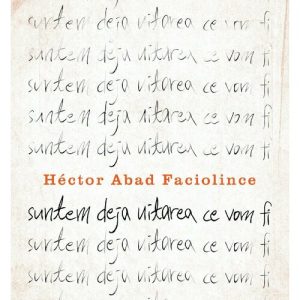 suntem deja uitarea ce vom fi
suntem deja uitarea ce vom fi
suntem deja uitarea ce vom fi
suntem deja uitarea ce vom fi
suntem deja uitarea ce vom fi
Héctor Abad Faciolince
suntem deja uitarea ce vom fi
suntem deja uitarea ce vom fi
suntem deja uitarea ce vom fi
suntem deja uitarea ce vom fi